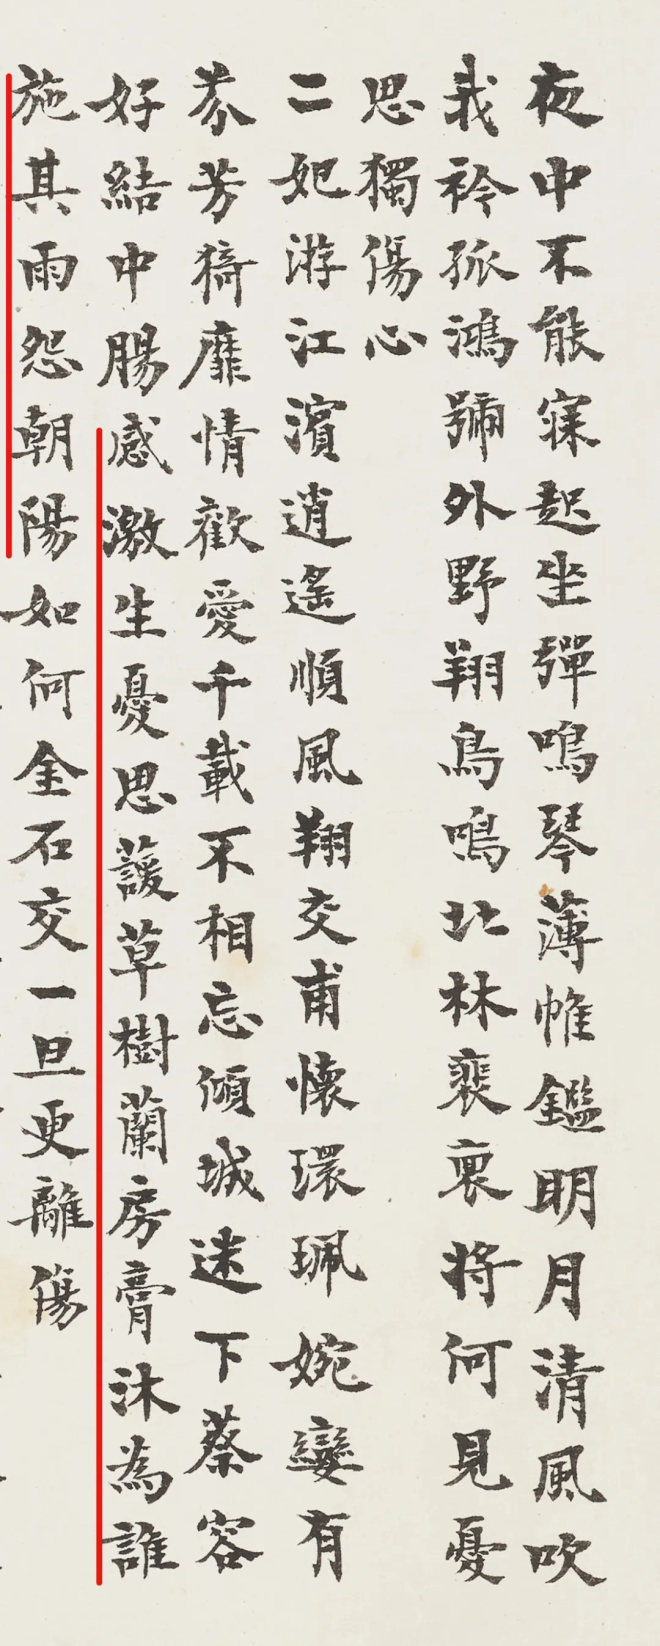 夜中不能寐起坐彈鳴琴薄帷鑑明月清風吹
我衿孤鴻號外野翔鳥鳴北林裴裒將何見憂
思獨傷心
二妃游江濱逍遙順風翔交甫懷環珮婉孌有
芬芳猗靡情歡愛千載不相忘傾城迷下蔡容
好結中腸感激生憂思蘐草樹蘭房膏沐為誰
施其雨怨朝陽如何金石交一旦更離傷